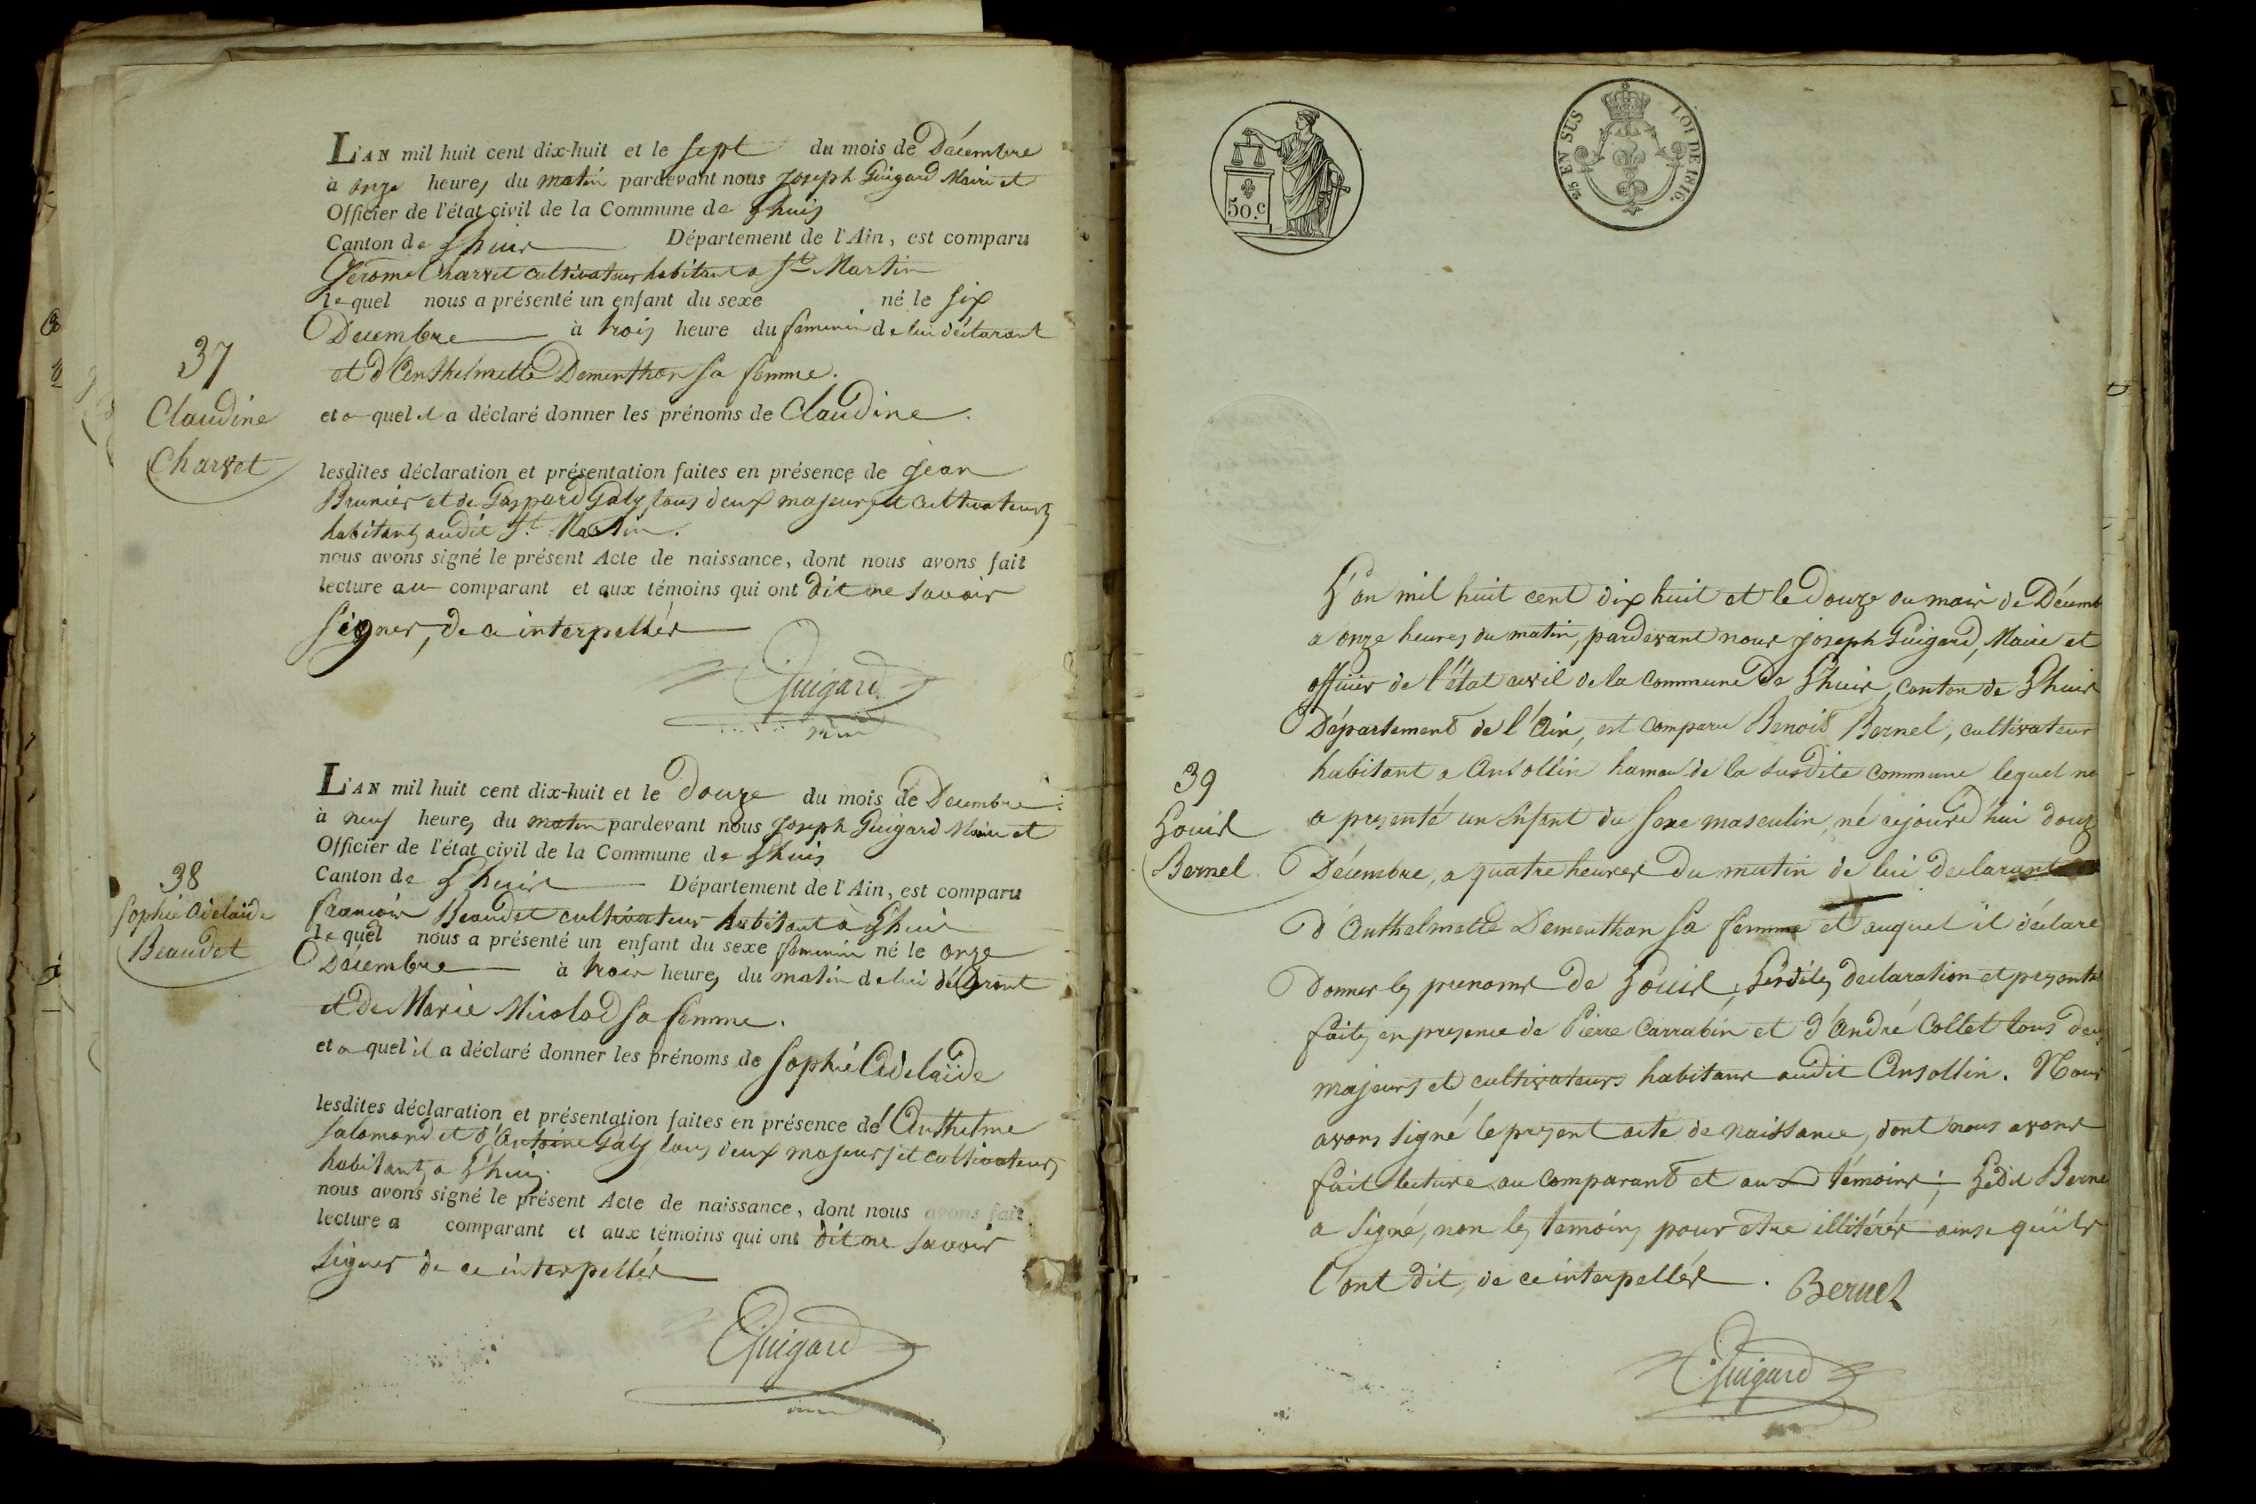 L'AN mil huit cent dix-huit et le sept du mois de Décembre
à onze heures du matin pardevant nous joseph Guigard Maire et
Officier de l'état civil de la Commune de Lhuis
Canton de Lhuis Département de l'Ain, est comparu
Jérome Charvet cultivateur habitant a St. Martin
lequel nous a présenté un enfant du sexe né le six
Décembre à trois heure du féminin de lui déclarant
et d'Anthelmette Dementhon sa femme.
37
Claudine
Charvet
et a quel il a déclaré donner les prénoms de Claudine.
lesdites déclaration et présentation faites en présence de jean
Brunier et de Gaspard Galy tous deux majeurs et cultivateurs
habitants audit St. Martin.
nous avons signé le présent Acte de naissance, dont nous avons fait
lecture au comparant et aux témoins qui ont dit ne savoir
signer, de ce interpellés
Guigard
L'AN mil huit cent dix-huit et le douze du mois de Decembre
à neuf heures du matin pardevant nous joseph Guigard Maire et
Officier de l'état civil de la Commune de Lhuis
Canton de Lhuis Département de l'Ain, est comparu
francois Beaudet cultivateur habitant à Lhuis
lequel nous a présenté un enfant du sexe féminin né le onze
Décembre à trois heures du matin de lui déclarant
et de Marie Micolod sa femme.
38
Sophie Adelaïde
Beaudet
et a quel il a déclaré donner les prénoms de Sophie Adelaïde
lesdites déclaration et présentation faites en présence de Anthelme
Salomand et d'Antoine Galy tous deux majeurs et cultivateurs
habitants a Lhuis.
nous avons signé le présent Acte de naissance, dont nous avons fait
lecture a comparant et aux témoins qui ont dit ne savoir
signer de ce interpellés
Guigard
50.c
2/5 EN SUS LOI DE 1816.
L'an mil huit cent dix huit et le Douze du mois de Décemb
a onze heures du matin, pardevant nous joseph Guigard, Maire et
officier de l'état civil de la commune de Lhuis, canton de Lhuis
Département de l'Ain, est comparu Benoit Bernel, cultivateur
habitant a Ansollin hamau de la susdite commune lequel no
a presenté un enfant du sexe masculin, né cejourd'hui douz
Décembre, a quatre heures du matin de lui declarant
d'Anthelmette Dementhon sa femme et auquel il déclare
39
Louis
Bernel
donner les prenoms de Louis, Lesdites declaration et presenta
faites en presence de Pierre Carrabin et d'André Collet tous deu
majeurs et cultivateurs habitans audit Ansollin. Nous
avons signé le present acte de naissance, dont nous avons
fait lecture au comparant et aux témoins; Ledit Berne
a signé, non les temoins pour etre illitérés ainsi qu'ils
l'ont dit, de ce interpellés. Bernel
Guigard